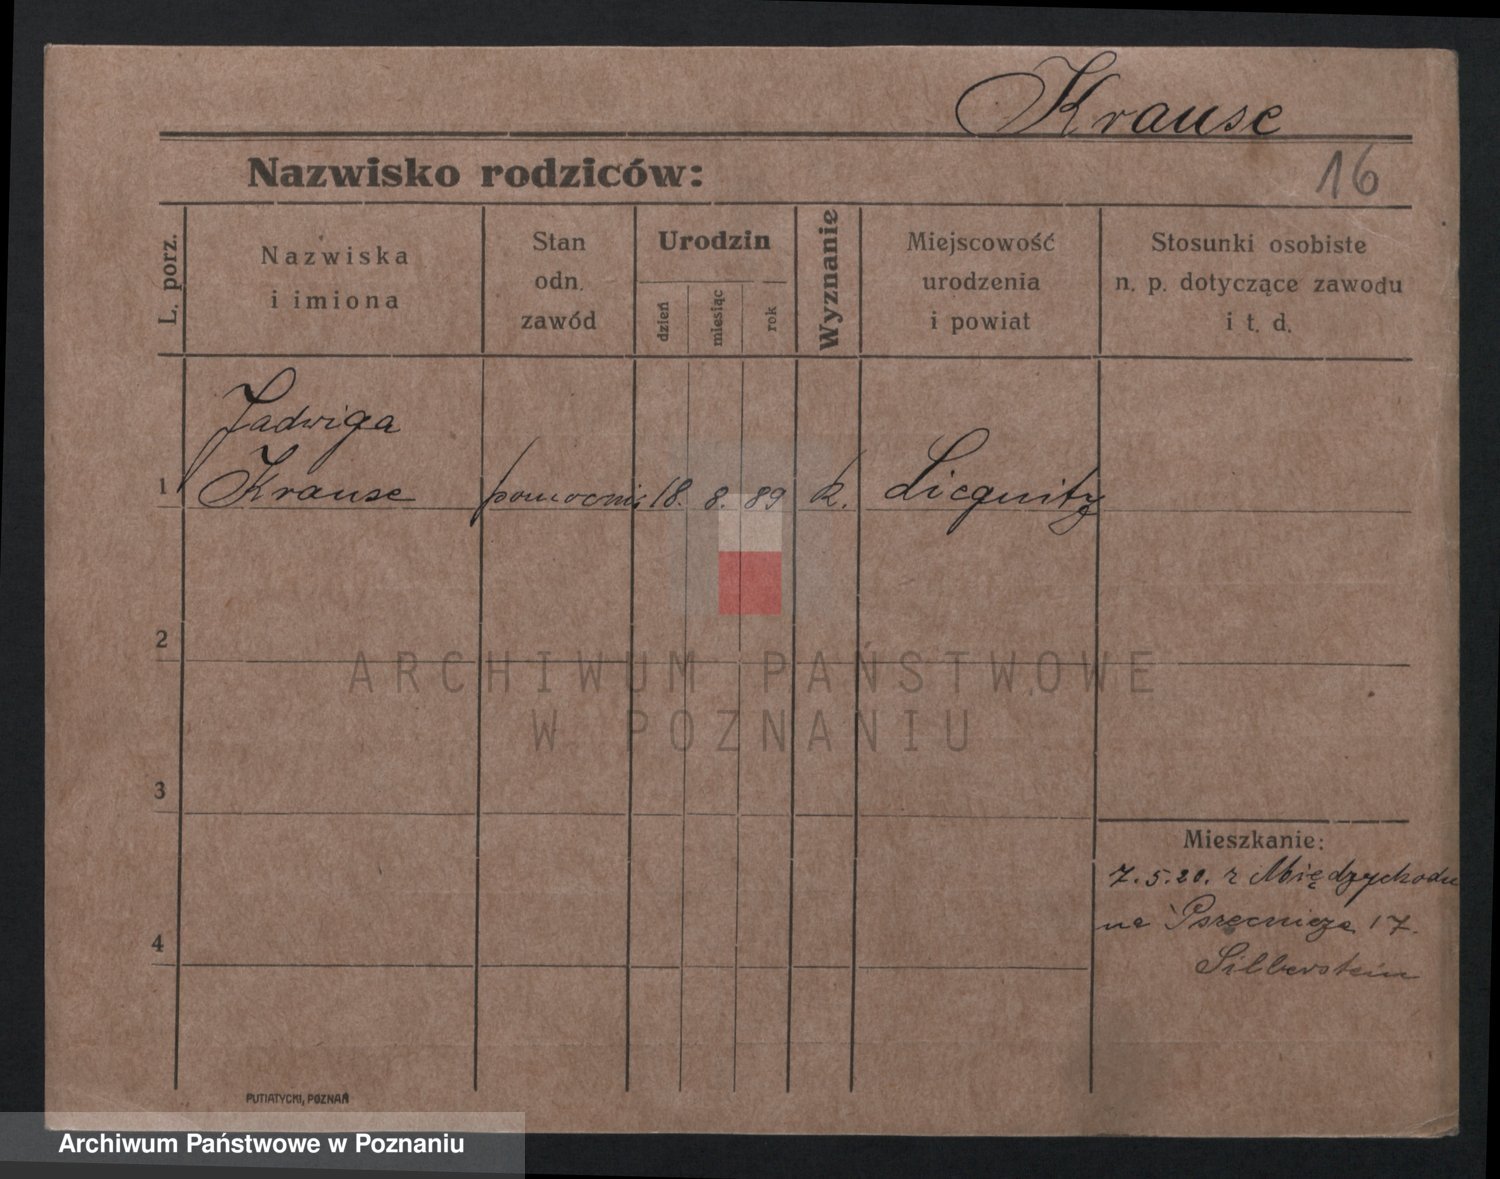 Krause
Nazwisko rodziców:
16
L. porz.
Nazwiska
i imiona
Stan
odn.
zawód
Urodzin
dzień
miesiąc
rok
Wyznanie
Miejscowość
urodzenia
i powiat
Stosunki osobiste
n. p. dotyczące zawodu
i t. d.
Jadwiga
1 Krause pomocnic 18. 8. 89 k. Liegnitz
2
ARCHIWUM PAŃSTWOWE
W POZNANIU
3
Mieszkanie:
7.5.20. z Międzychodu
na 17.
4
Silberstein
PUTIATYCKI, POZNAŃ
Archiwum Państwowe w Poznaniu